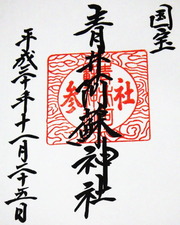 国宝
青井阿蘇神社
平成二十年十一月二十五日